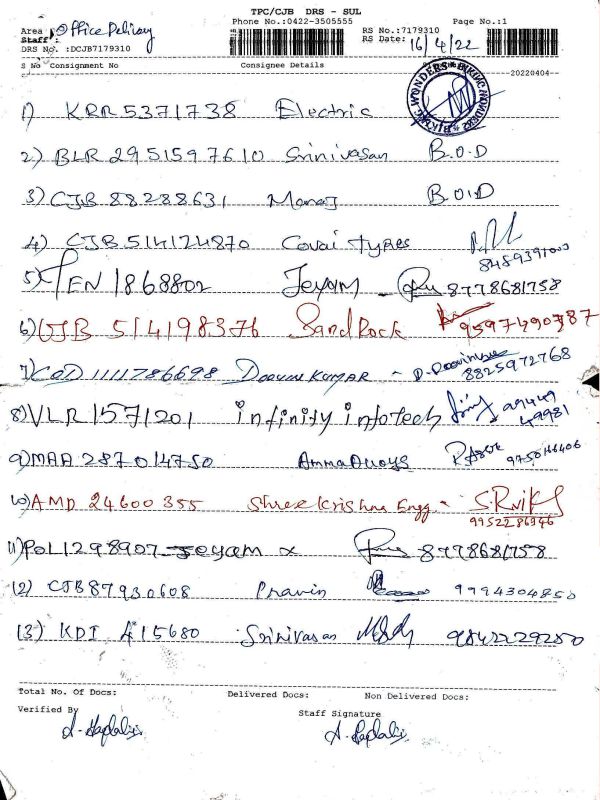 TPC/CJB DRS - SUL
Phone No.:0422-3505555 Page No.:1
Area : Office Delivery RS No.:7179310
Staff : RS Date: 16/4/22
DRS No. :DCJB7179310
S No Consignment No Consignee Details
20220404
1) KRR 5371738 Electric
2) BLR 2951597610 Srinivasan B.O.D
3) CJB 88288631 Manoj B.O.D
4) CJB 514124870 Covai tyres
8489391000
5) PEN 1868802 Jeyam 8778681758
6) CJB 514198376 Sand Rock 9597490787
7) COD 1111786698 8825972768
8) VLR 1571201 infinity infotech 99449
49981
9) MAA 287014750 Amma Alloys 9750166406
10) AMD 24600355 Shree Krishna Engg
9952286946
11) POL1298907 Jeyam 8778681758
12) CJB87930608 Pravin 9994304850
13) KDI 415680 Srinivasan 9842229250
Total No. Of Docs: Delivered Docs: Non Delivered Docs:
Verified By Staff Signature